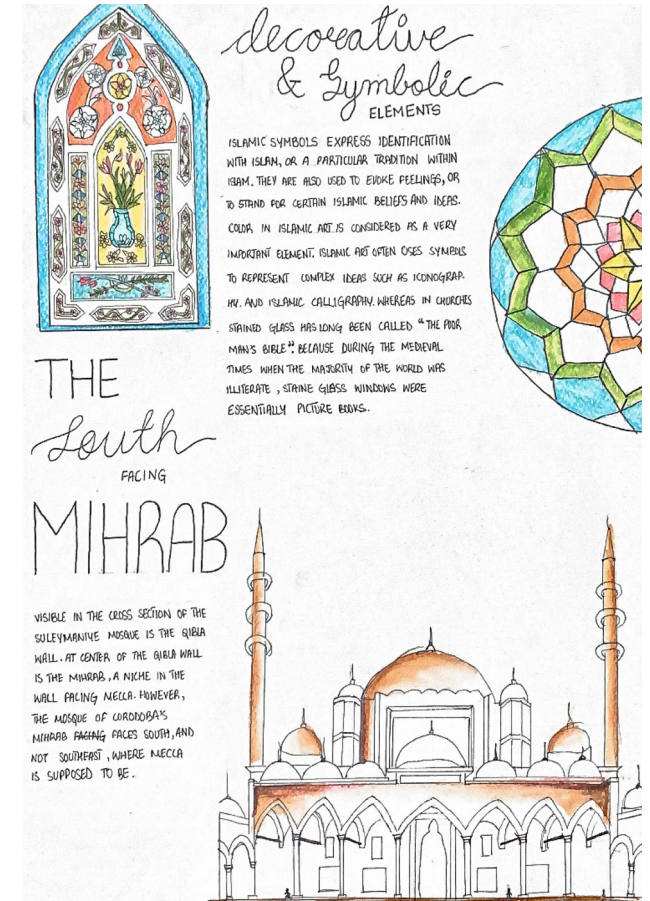 decorative
& Symbolic
ELEMENTS
ISLAMIC SYMBOLS EXPRESS IDENTIFICATION
WITH ISLAM, OR A PARTICULAR TRADITION WITHIN
ISLAM. THEY ARE ALSO USED TO EVOKE FEELINGS, OR
TO STAND FOR CERTAIN ISLAMIC BELIEFS AND IDEAS.
COLOR IN ISLAMIC ART IS CONSIDERED AS A VERY
IMPORTANT ELEMENT. ISLAMIC ART OFTEN USES SYMBOLS
TO REPRESENT COMPLEX IDEAS SUCH AS ICONOGRAP-
HY. AND ISLAMIC CALLIGRAPHY. WHEREAS IN CHURCHES
STAINED GLASS HAS LONG BEEN CALLED "THE POOR
MAN'S BIBLE". BECAUSE DURING THE MEDIEVAL
TIMES WHEN THE MAJORITY OF THE WORLD WAS
ILLITERATE, STAINE GLASS WINDOWS WERE
ESSENTIALLY PICTURE BOOKS.
THE
South
FACING
MIHRAB
VISIBLE IN THE CROSS SECTION OF THE
SULEYMANIYE MOSQUE IS THE QIBLA
WALL. AT CENTER OF THE QIBLA WALL
IS THE MIHRAB, A NICHE IN THE
WALL FACING MECCA. HOWEVER,
THE MOSQUE OF CORODOBA'S
MIHRAB FACING FACES SOUTH, AND
NOT SOUTHEAST, WHERE MECCA
IS SUPPOSED TO BE.